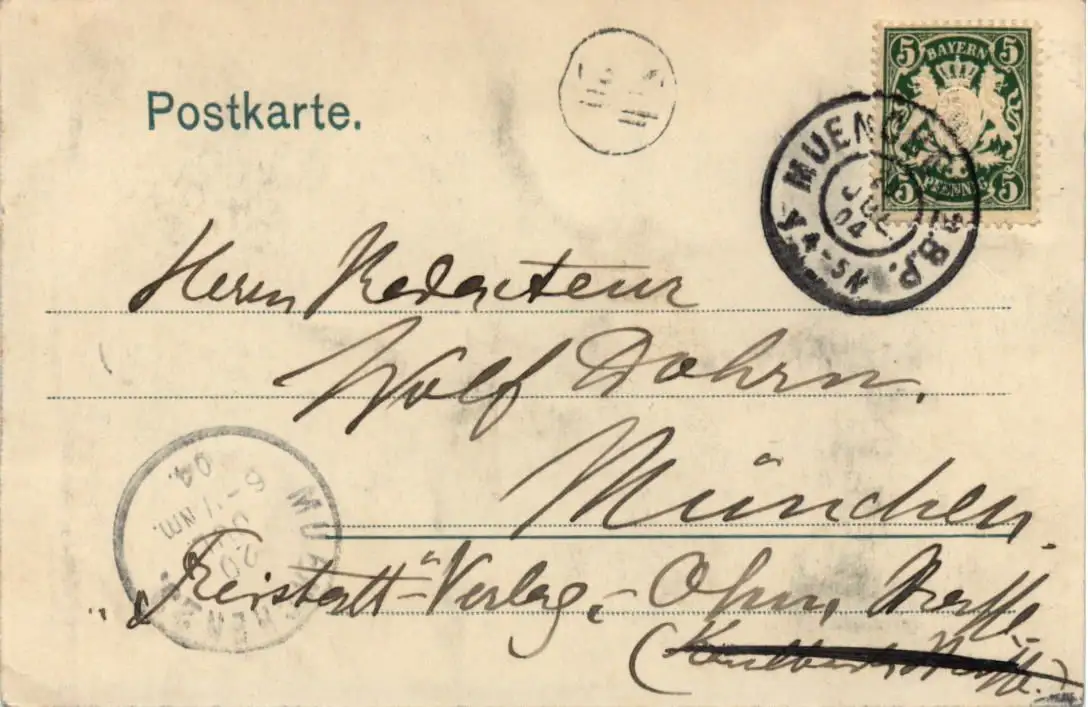 Postkarte.
5 BAYERN 5
5 PFENNIG 5
MUENCHEN B.P.
JUL
04
4-5N
Herrn Redacteur
Wolf Dohrn,
München.
"Freistatt"-Verlag,- Ohm Straße.
MUENCHEN 2.
20
JUL
6-7 NM.
04.